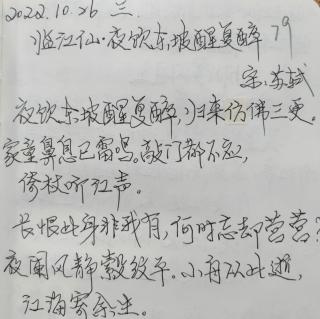 2022.10.26 三.
临江仙·夜饮东坡醒复醉 79
宋.苏轼
夜饮东坡醒复醉,归来仿佛三更。
家童鼻息已雷鸣。敲门都不应,
倚杖听江声。
长恨此身非我有,何时忘却营营?
夜阑风静縠纹平。小舟从此逝,
江海寄余生。